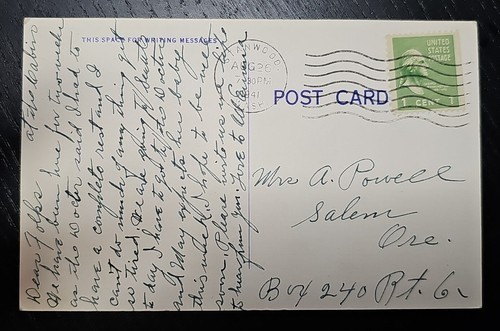 THIS SPACE FOR WRITING MESSAGES
at the Cabin
Dear Folks
We have been here for two weeks
as the Doctor said I had to
have a complete rest and I
can't do much of any thing get
so tired. We are going to
to day I have to go to the Doctor
and May expects her baby
this week I hope to be well
soon. Please write us we like
to hear from you. Love to all
STANWOOD
AUG 26
7 30 PM
41
POST CARD
UNITED
STATES
POSTAGE
1 CENT 1
Mrs A. Powell
Salem
Ore.
Box 240 Rt. 6